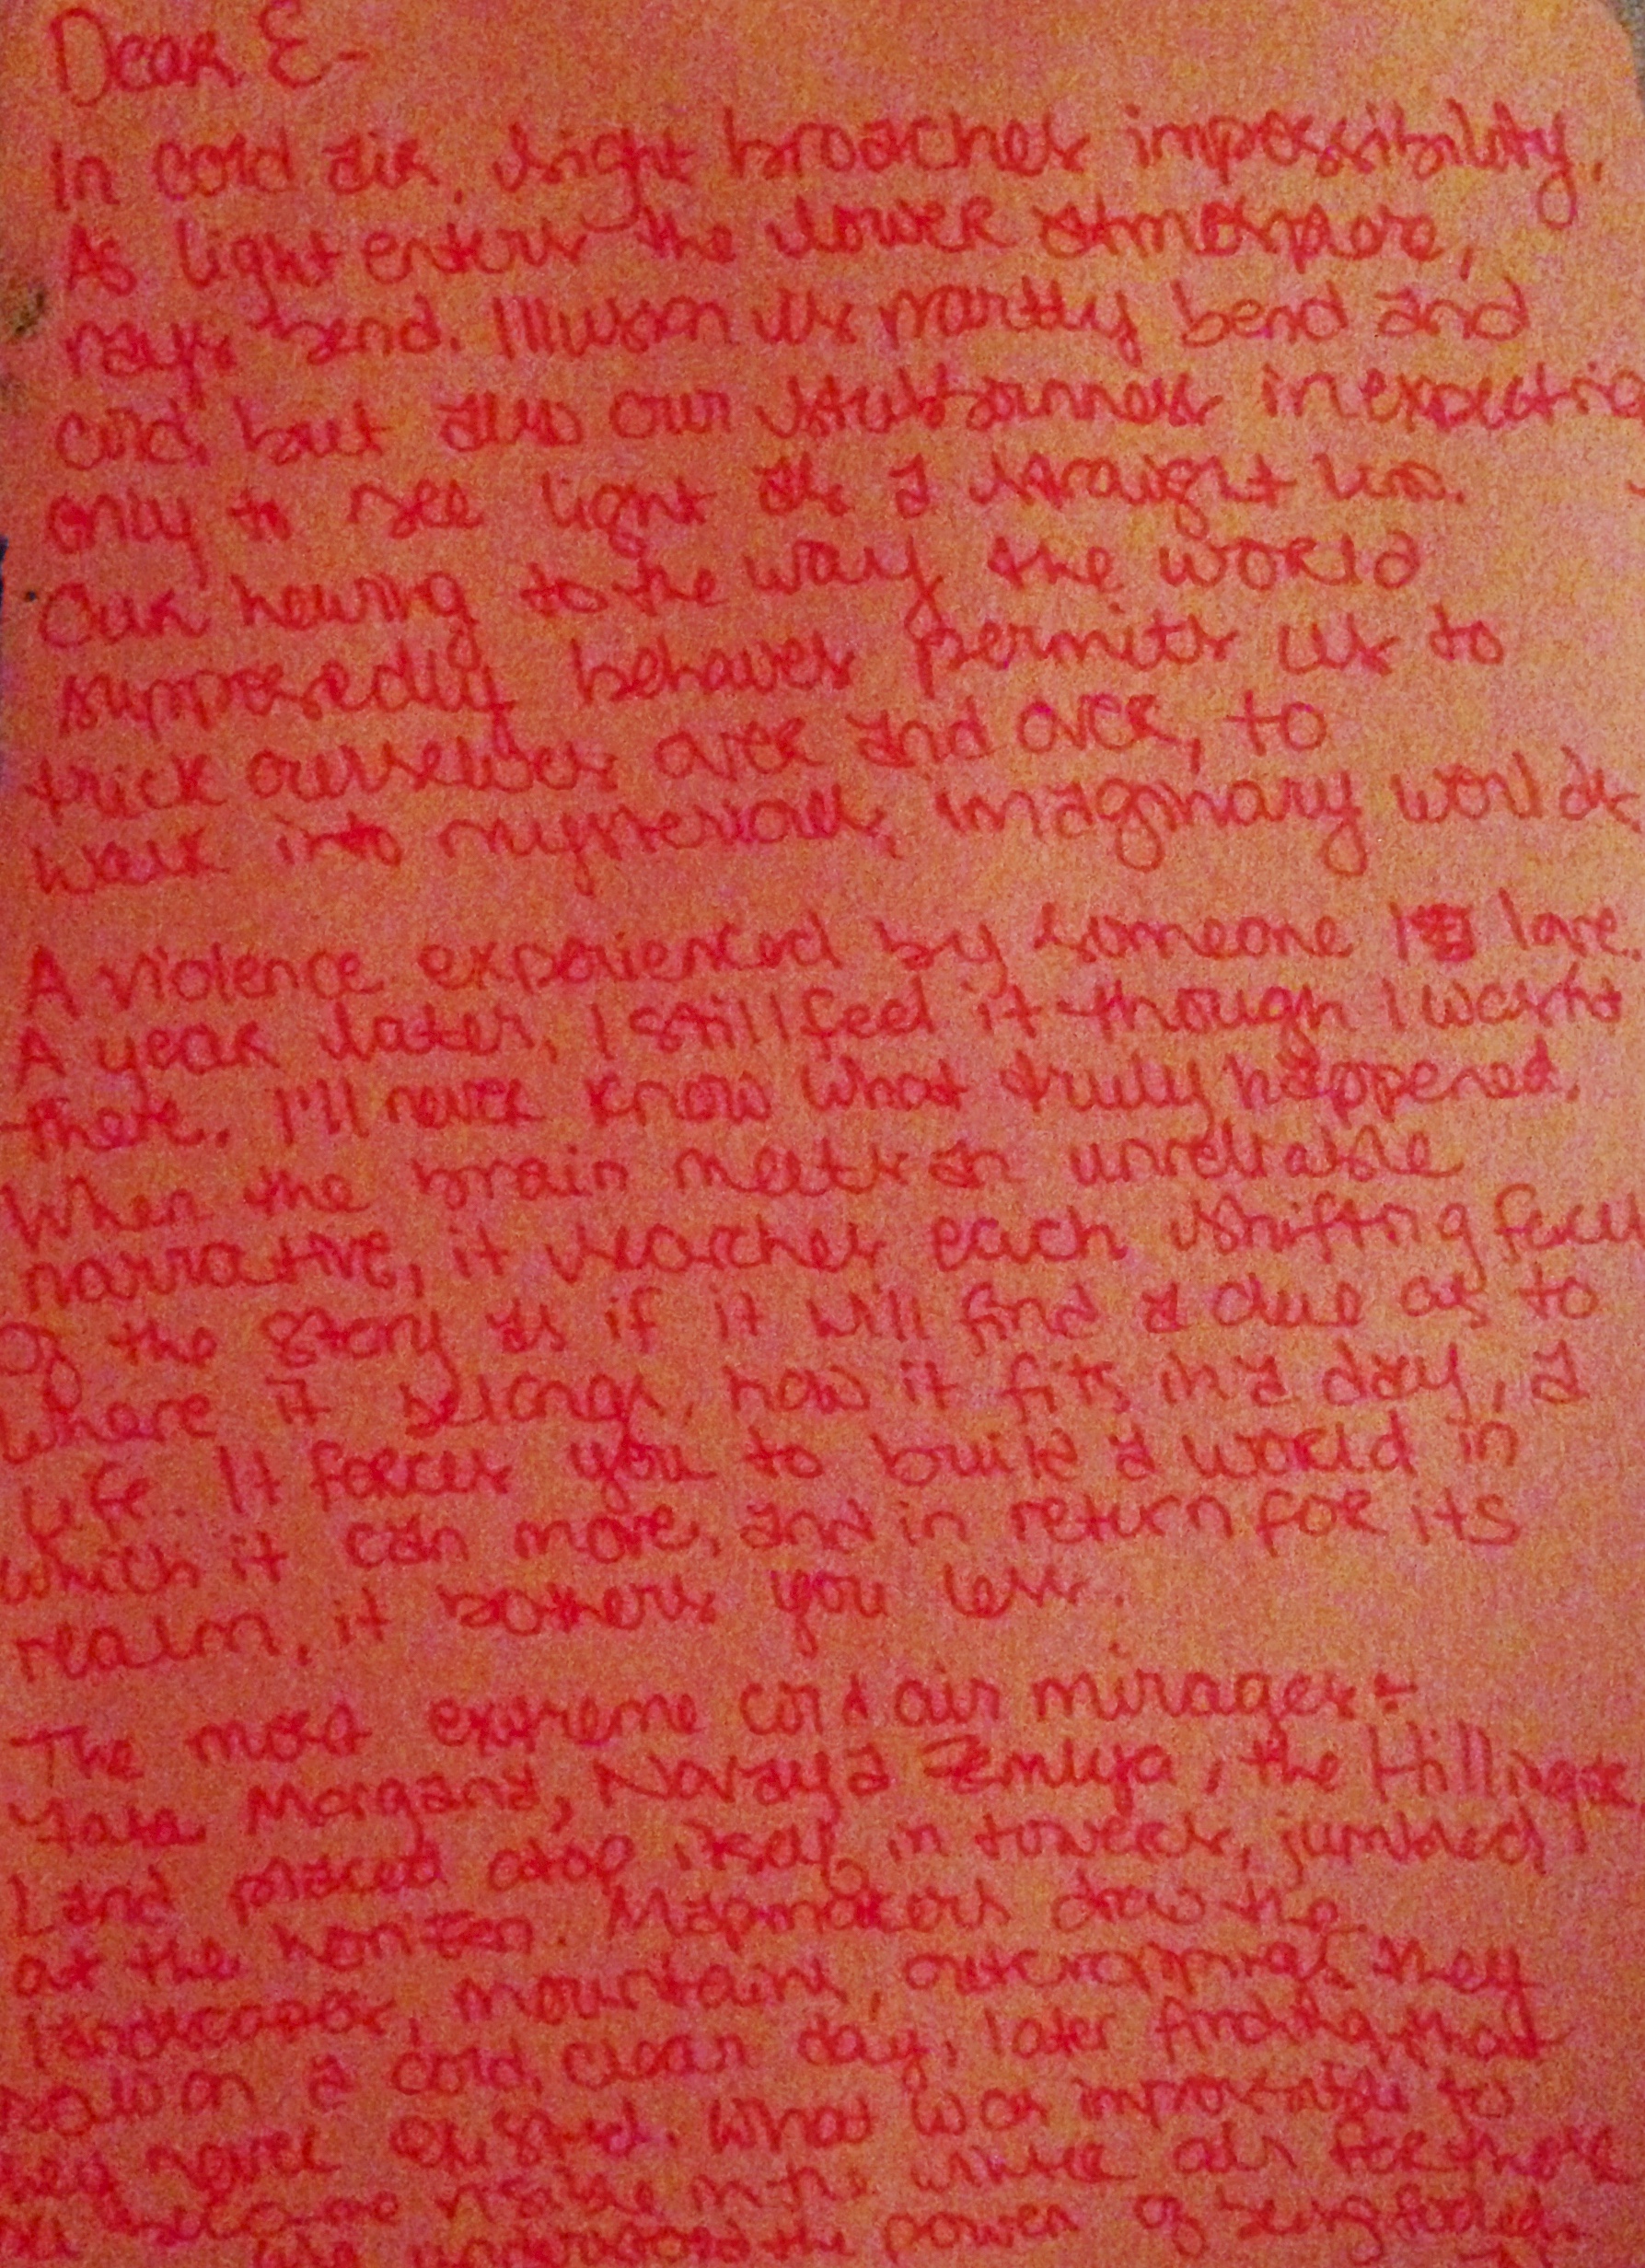 Dear E-
In cold air, light broaches impossibility.
As light enters the lower atmosphere,
rays bend. Illusion is partly bend and
cold, but also our stubbornness in expecting
only to see light as a straight line.
Our hewing to the way the world
supposedly behaves permits us to
trick ourselves over and over, to
walk into mysterious, imaginary worlds.
A violence experienced by someone I love.
A year later, I still feel it though I wasn't
there. I'll never know what truly happened.
When the brain meets an unreliable
narrative, it searches each shifting facet
of the story as if it will find a clue as to
where it belongs, how it fits in a day, a
life. It forces you to build a world in
which it can move, and in return for its
realm, it bothers you less.
The most extreme cold air mirages:
Fata Morgana, Novaya Zemlya, the Hillingar
Land placed atop itself in towers, jumbled
at the horizon. Mapmakers draw the
landscapes, mountains, outcroppings they
saw on a cold, clear day, later finding that
they never existed. What was impossible to
see became visible in the white air
understood the power of being fooled.